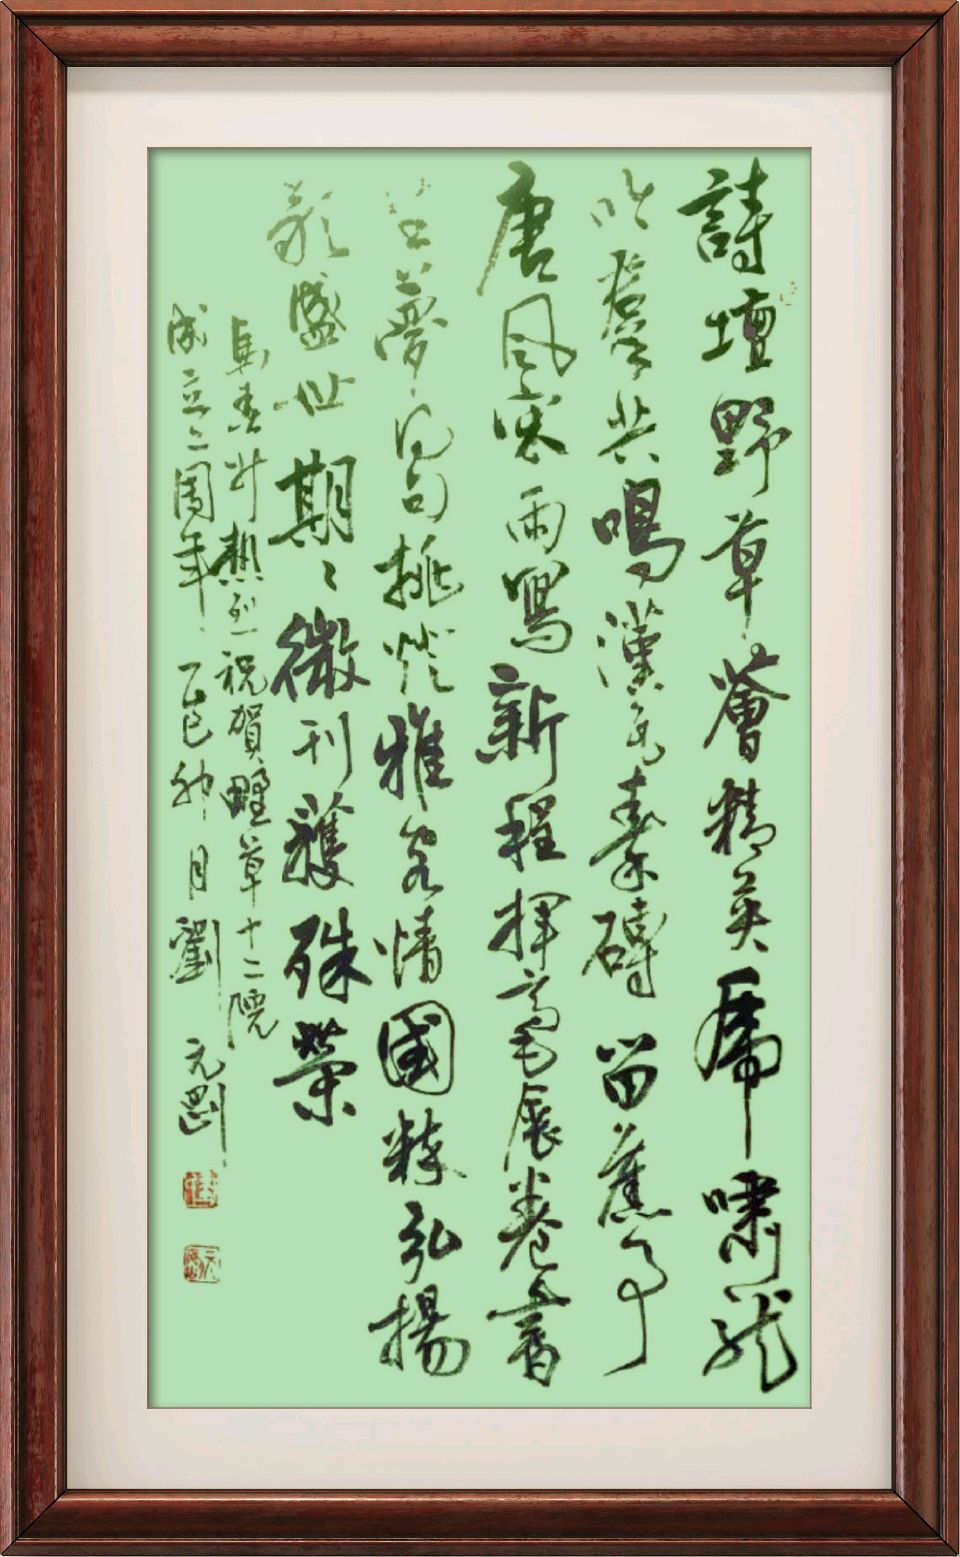 詩壇野草薈精英虎嘯龍
吟共鳴漢瓦秦磚留舊事
唐風宋雨寫新程揮毫展卷書
夢句挑燈雅客情國粹弘揚
歌盛世期々微刊獲殊榮
熱烈祝賀野草十二院
成立二周年乙巳月劉元剛